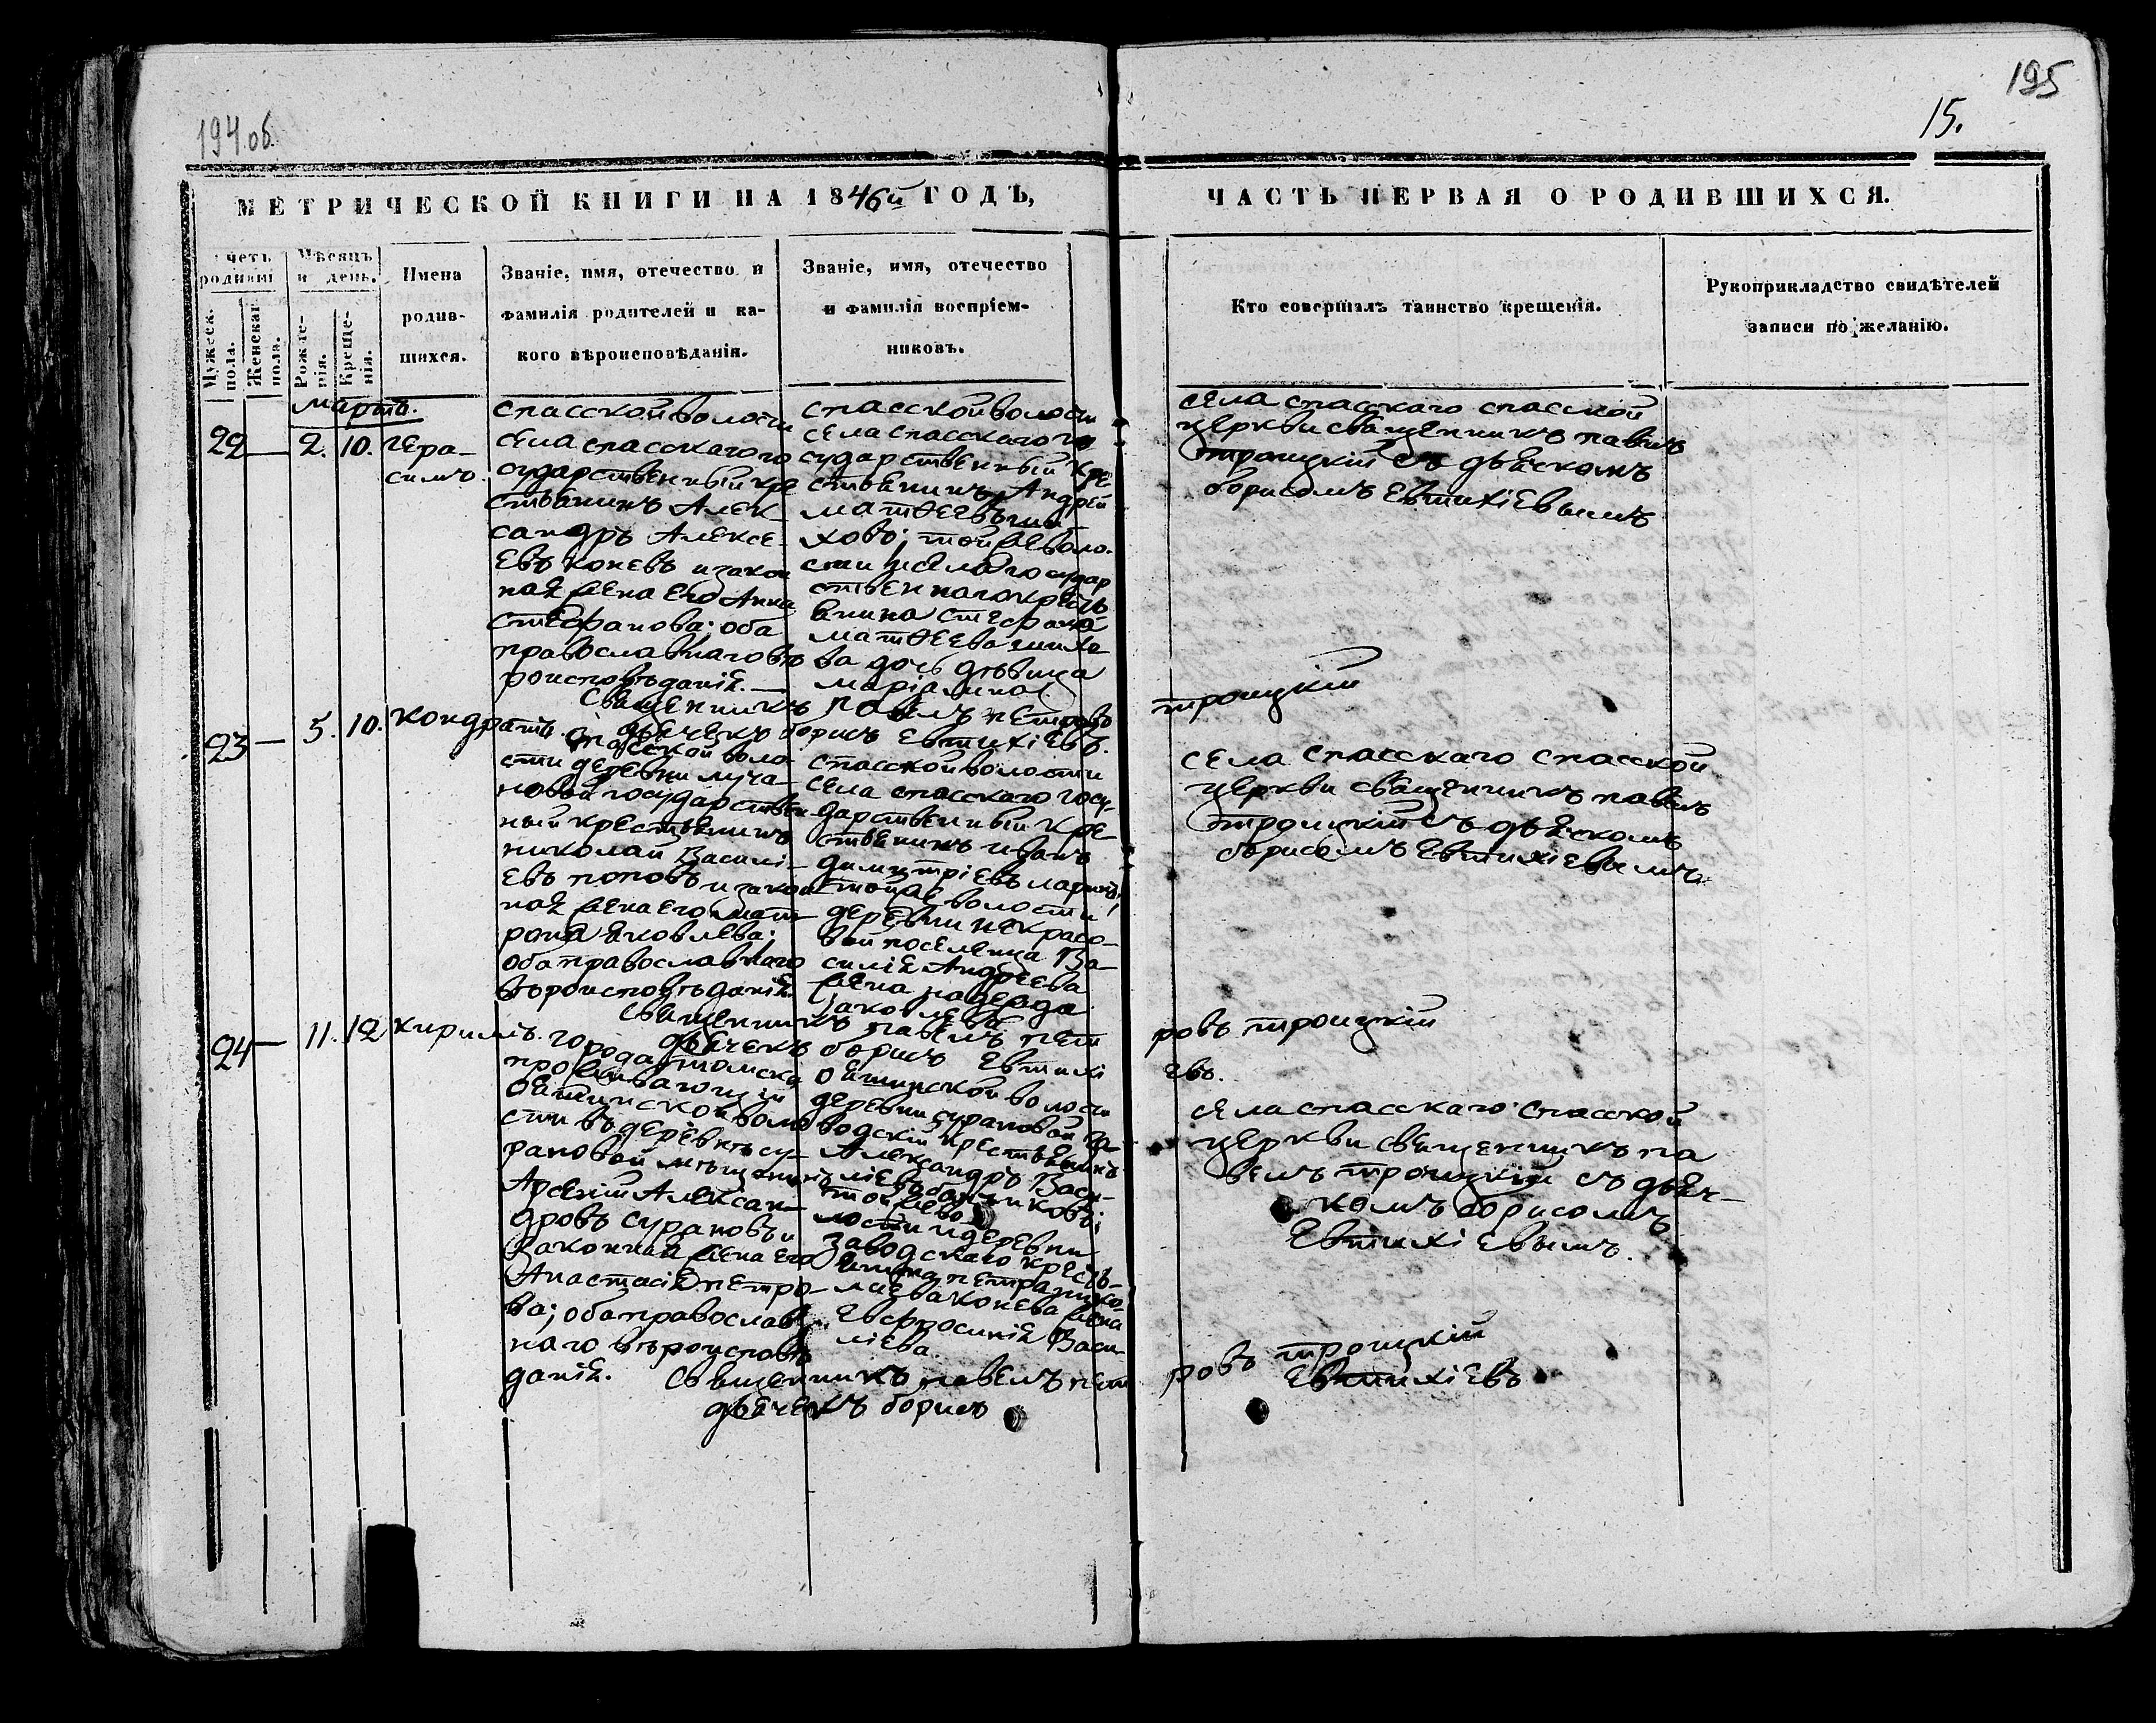 194 об.
195
15.
МЕТРИЧЕСКОЙ КНИГИ НА 1846й ГОДЪ,
ЧАСТЬ ПЕРВАЯ О РОДИВШИХСЯ.
четъ родивши
Мужеск. пола.
Женскаг пола.
Мѣсяцъ и день.
Рожденія.
Крещенія.
Имена
родив-
шихся.
Званіе, имя, отечество и
фамилія родителей и ка-
кого вѣроисповѣданія.
Званіе, имя, отечество
и фамилія воспріем-
никовъ.
Кто совершалъ таинство крещенія.
Рукоприкладство свидѣтелей
записи по желанію.
мартъ.
22 — 2. 10. гера-
симъ
спасской волости
села спасскаго го
сударственный кре
стьянинъ Алек-
сандръ Алексе-
евъ коневъ и закон
ная жена его Анна
стефанова; оба
православнаго вѣ
роисповѣданія. —
спасской волости
села спасскаго го
сударственный кре
стьянинъ Андрей
матѳеевъ ши-
ховъ; той же воло-
сти и села государ
ственнаго кресть
янина стефана
матѳеева шихо
ва дочь дѣвица
марія
села спасскаго спасской
церкви священникъ павелъ
троицкій съ дьячкомъ
борисомъ Евтихіевымъ
священникъ павелъ петровъ
троицкій
дьячекъ борисъ Евтихіевъ.
23 — 5. 10. кондратъ.
спасской воло
сти деревни луча-
новой государствен
ный крестьянинъ
николай Василі-
евъ поповъ и закон
ная жена его мат-
рона яковлева;
оба православнаго
вѣроисповѣданія.
спасской волости
села спасскаго госу-
дарственный кре-
стьянинъ иванъ
димитріевъ ларинъ;
той же волости
деревни некрасо-
вой поселенца Ва-
силія Андреева
жена надежда
яковлева
села спасскаго спасской
церкви священникъ павелъ
троицкій съ дьячкомъ
борисомъ Евтихіевымъ
священникъ павелъ пет
ровъ троицкій
дьячекъ борисъ Евтихі
евъ.
24 — 11. 12 кирилъ.
города томска
проживающій
ояшинской воло
сти въ деревнѣ су-
рановой мѣщанинъ
Арсеній Алексан-
дровъ сурановъ и
законная жена его
Анастасія петро-
ва; оба православ
наго вѣроисповѣ
данія.
ояшинской волости
деревни сурановой за-
водскій крестьянинъ
Александръ Васи-
ліевъ
той же во
лости и деревни
заводскаго кресть-
янина петра
конева жена
Евфросинія Васи-
ліева.
села спасскаго спасской
церкви священникъ па
велъ троицкій съ дьяч-
комъ борисомъ
Евтихіевымъ.
священникъ павелъ пет
ровъ троицкій
дьячекъ борисъ
Евтихіевъ